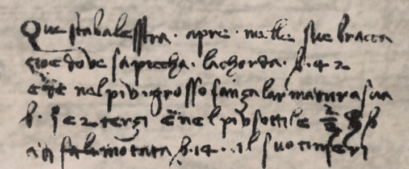 Questa balesstra · apre · nelle sue bracca
coe dove sapiccha · lachorda · b · 42
e eÿ nel piv · grosso sanza larmatura sua
b · 1 e 2 terzi e nel piv sottile 2/3 b
a di sta montata b · 14 · il suo tinieri